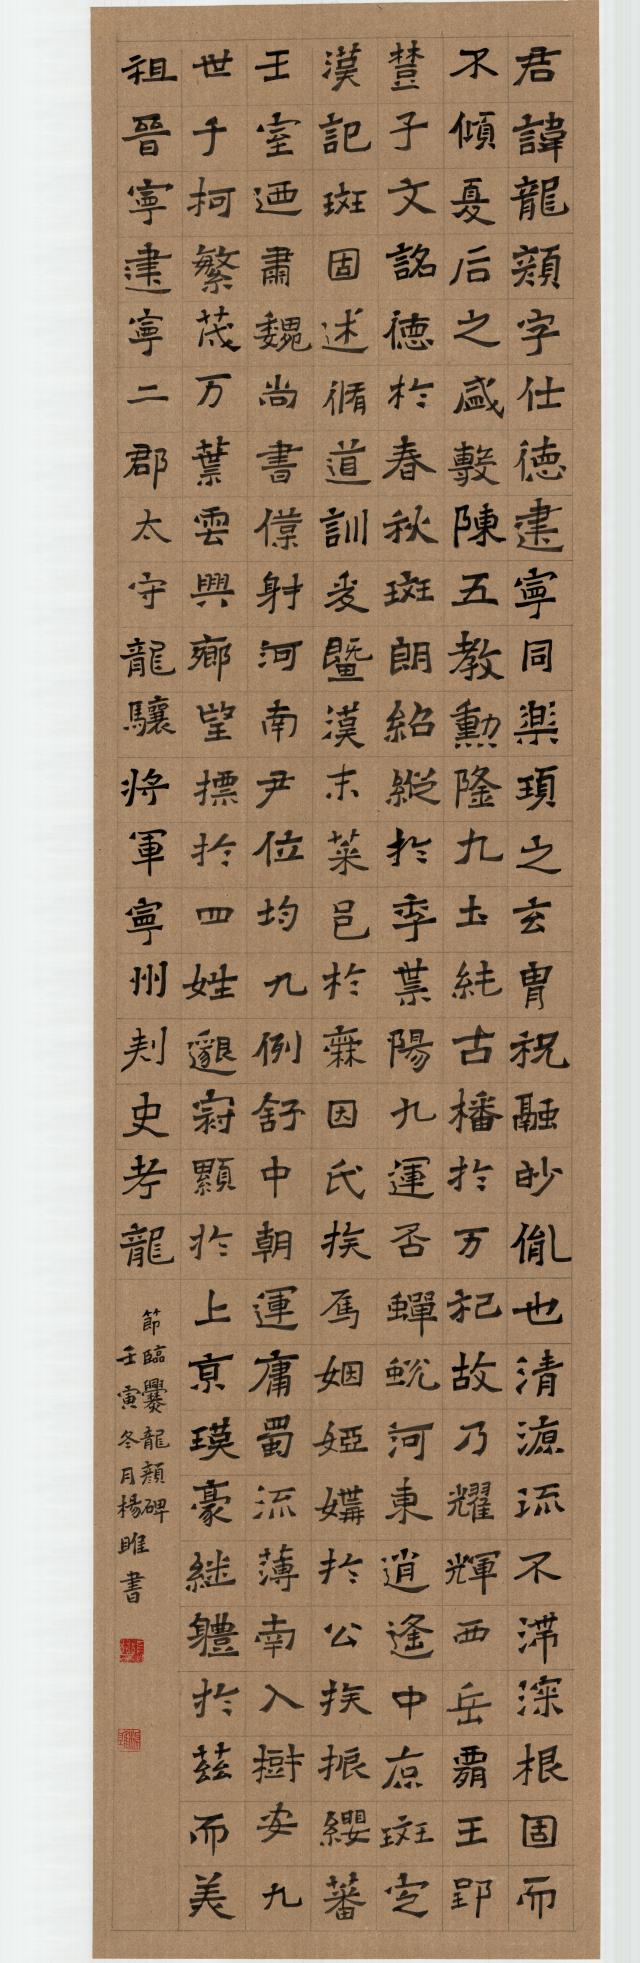 君諱龍顔字仕徳建寧同楽項之玄胄祝融眇胤也清源流不滞深根固而
不傾夏后之盛敷陳五教勳隆九土純古播於万祀故乃耀輝西岳覇王郢
楚子文銘徳於春秋斑朗紹縱於季葉陽九運否蟬蛻河東逍遥中原斑定
漢記斑固述脩道訓爰曁漢末菜邑於霖因氏挨焉姻婭媾於公挨振纓蕃
王室迺肅魏尚書僕射河南尹位均九例舒中朝運庸蜀流薄南入樹安九
世千柯繁茂万葉雲興鄉望摽於四姓邈冠顯於上京瑛豪継軆於茲而美
祖晉寧建寧二郡太守龍驤将軍寧州刾史考龍
節臨爨龍顔碑
壬寅冬月楊睢書